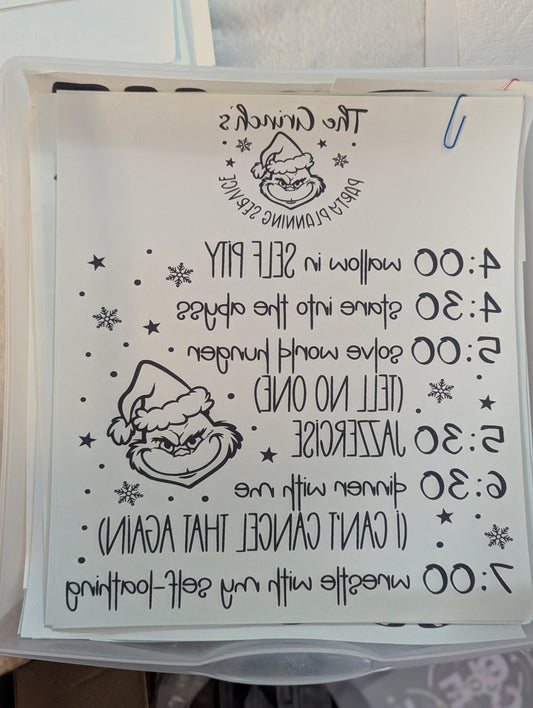 The Grinch's
PARTY PLANNING SERVICE
4:00 wallow in SELF PITY
4:30 stare into the abyss
5:00 solve world hunger
(TELL NO ONE)
5:30 JAZZERCISE
6:30 dinner with me
(I CAN'T CANCEL THAT AGAIN)
7:00 wrestle with my self-loathing